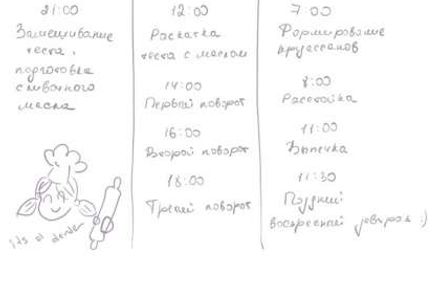 21:00
Замешивание
теста,
подготовка
сливочного
масла
12:00
Раскатка
теста с маслом
14:00
Первый поворот
16:00
Второй поворот
18:00
Третий поворот
7:00
Формирование
круассанов
8:00
Расстойка
11:00
Выпечка
11:30
Поздний
воскресный завтрак :)